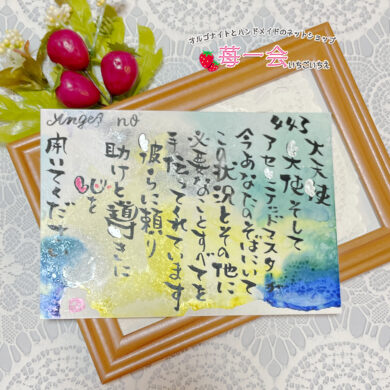 オルゴナイトとハンドメイドのネットショップ
苺一会
いちごいちえ
Angel no
443
大天使
天使そして
アセンデッドマスターが
今あなたのそばにいて
この状況とその他に
必要なことすべてを
手伝ってくれています
彼らに頼り
助けと導きに
を
開いてくださ